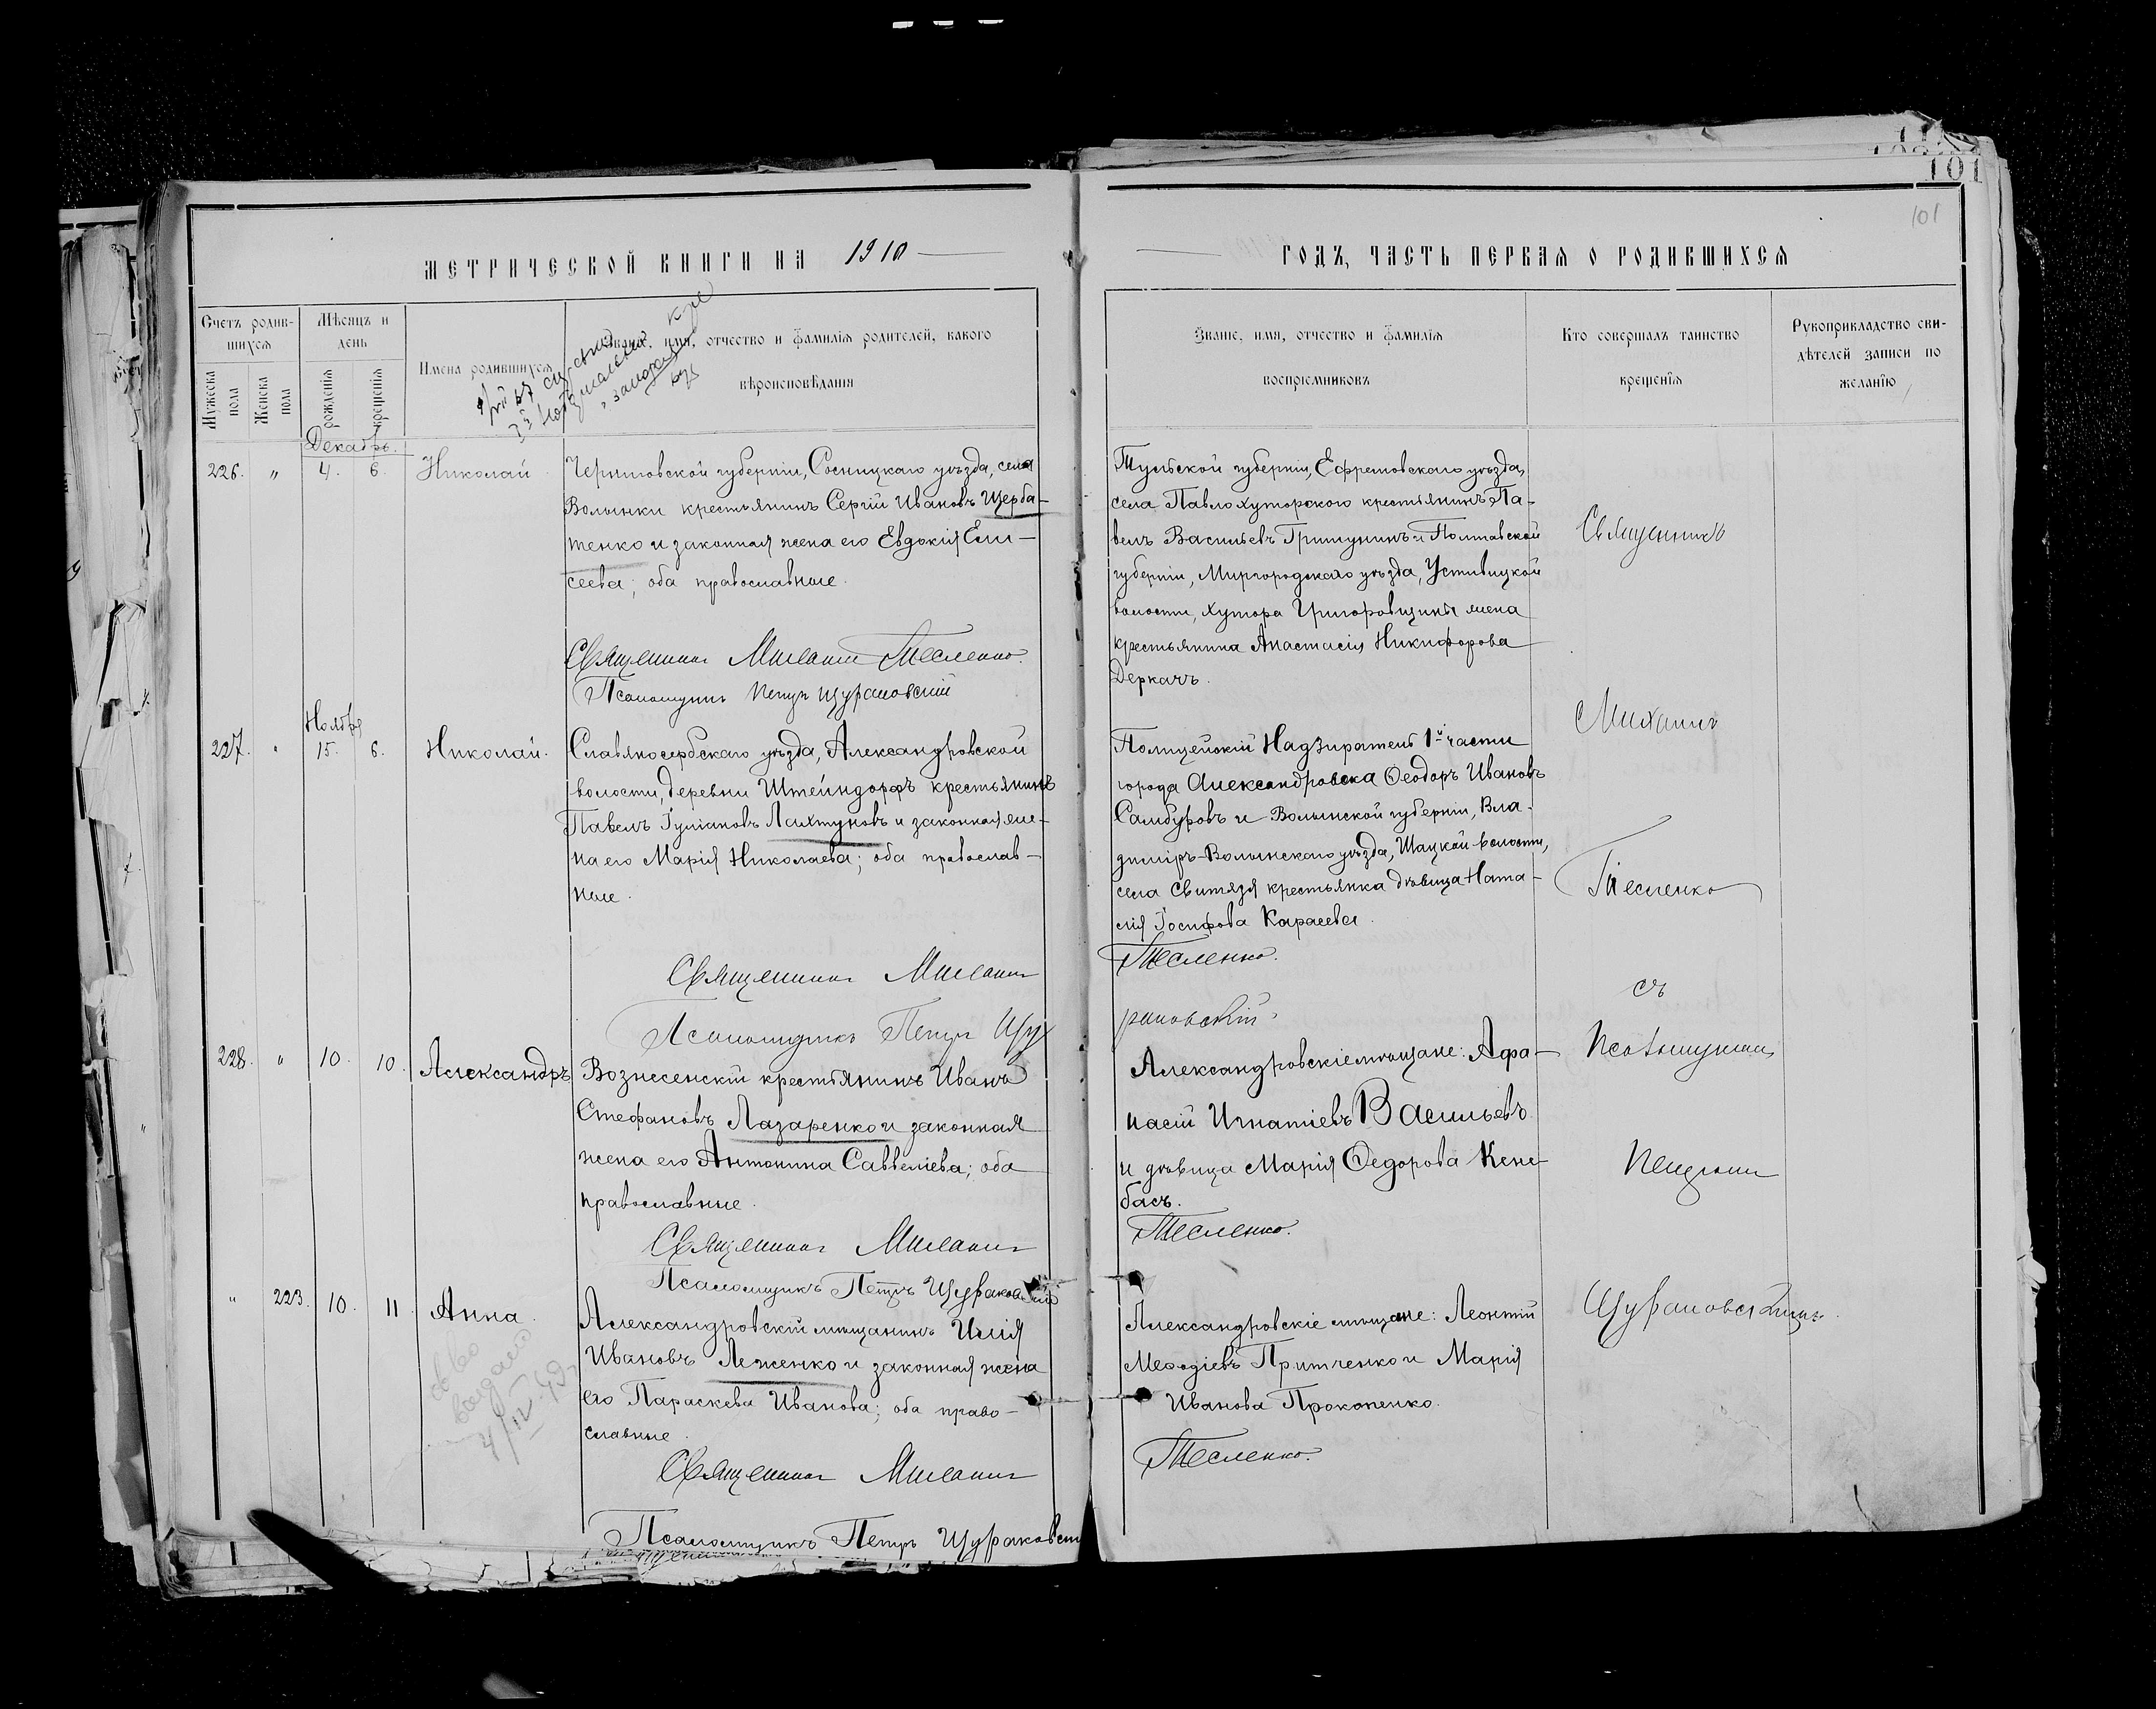 101
101
МЕТРИЧЕСКОЙ КНИГИ НА 1910
ГОДЪ, ЧАСТЬ ПЕРВАЯ О РОДИВШИХСЯ
Счетъ родив-
шихся
Мужеска пола
Женска пола
Мѣсяцъ и
день
рожденія
крещенія
Имена родившихся
Званіе, имя, отчество и фамилія родителей, какого
вѣроисповѣданія
Званіе, имя, отчество и фамилія
воспріемниковъ
Кто совершалъ таинство
крещенія
Рукоприкладство сви-
дѣтелей записи по
желанію
Декабрь.
226. " 4. 6. Николай
Черниговской губерніи, Сосницкаго уѣзда, села
Волынки крестьянинъ Сергій Ивановъ Щерба-
тенко и законная жена его Евдокія Ели-
сеева; оба православные.
Священникъ Михаилъ Тесленко.
Псаломщикъ Петръ Щураковскій
Тульской губерніи, Ефремовскаго уѣзда,
села Павлохуторского крестьянинъ Па-
велъ Васильевъ Гришунинъ и Полтавской
губерніи, Миргородскаго уѣзда, Устивицкой
волости, хутора Григоровщины жена
крестьянина Анастасія Никифорова
Деркачъ.
Ноября
227. " 15. 6. Николай.
Славяносербскаго уѣзда, Александровской
волости, деревни Штейндорфъ крестьянинъ
Павелъ Іуліановъ Лахтуновъ и законная же-
на его Марія Николаева; оба православ-
ные.
Священникъ Михаилъ
Тесленко.
Псаломщикъ Петръ Щу
раковскій.
Полицейскій Надзиратель 1й части
города Александровска Ѳеодоръ Ивановъ
Самбуровъ и Волынской губерніи, Вла-
димiръ-Волынскаго уѣзда, Шацкой волости,
села Свитязя крестьянка дѣвица Ната-
лія Іосифова Карасева.
228. " 10. 10. Александръ
Вознесенскій крестьянинъ Иванъ
Стефановъ Лазаренко и законная
жена его Антонина Савеліева; оба
православные.
Священникъ Михаилъ
Тесленко.
Псаломщикъ Петръ Щураковскій
Александровскіе мѣщане: Афа-
насій Игнатіевъ Васильевъ
и дѣвица Марія Ѳедорова Кене-
басъ.
" 223. 10. 11. Анна.
Александровскій мѣщанинъ Илія
Ивановъ Леженко и законная жена
его Параскева Иванова; оба право-
славные.
Священникъ Михаилъ
Тесленко.
Псаломщикъ Петръ Щураковскій
Александровскіе мѣщане: Леонтій
Меѳодіевъ Притченко и Марія
Иванова Прокопенко.
Священникъ
Михаилъ
Тесленко
съ
псаломщикомъ
Петромъ
Щураковскимъ.